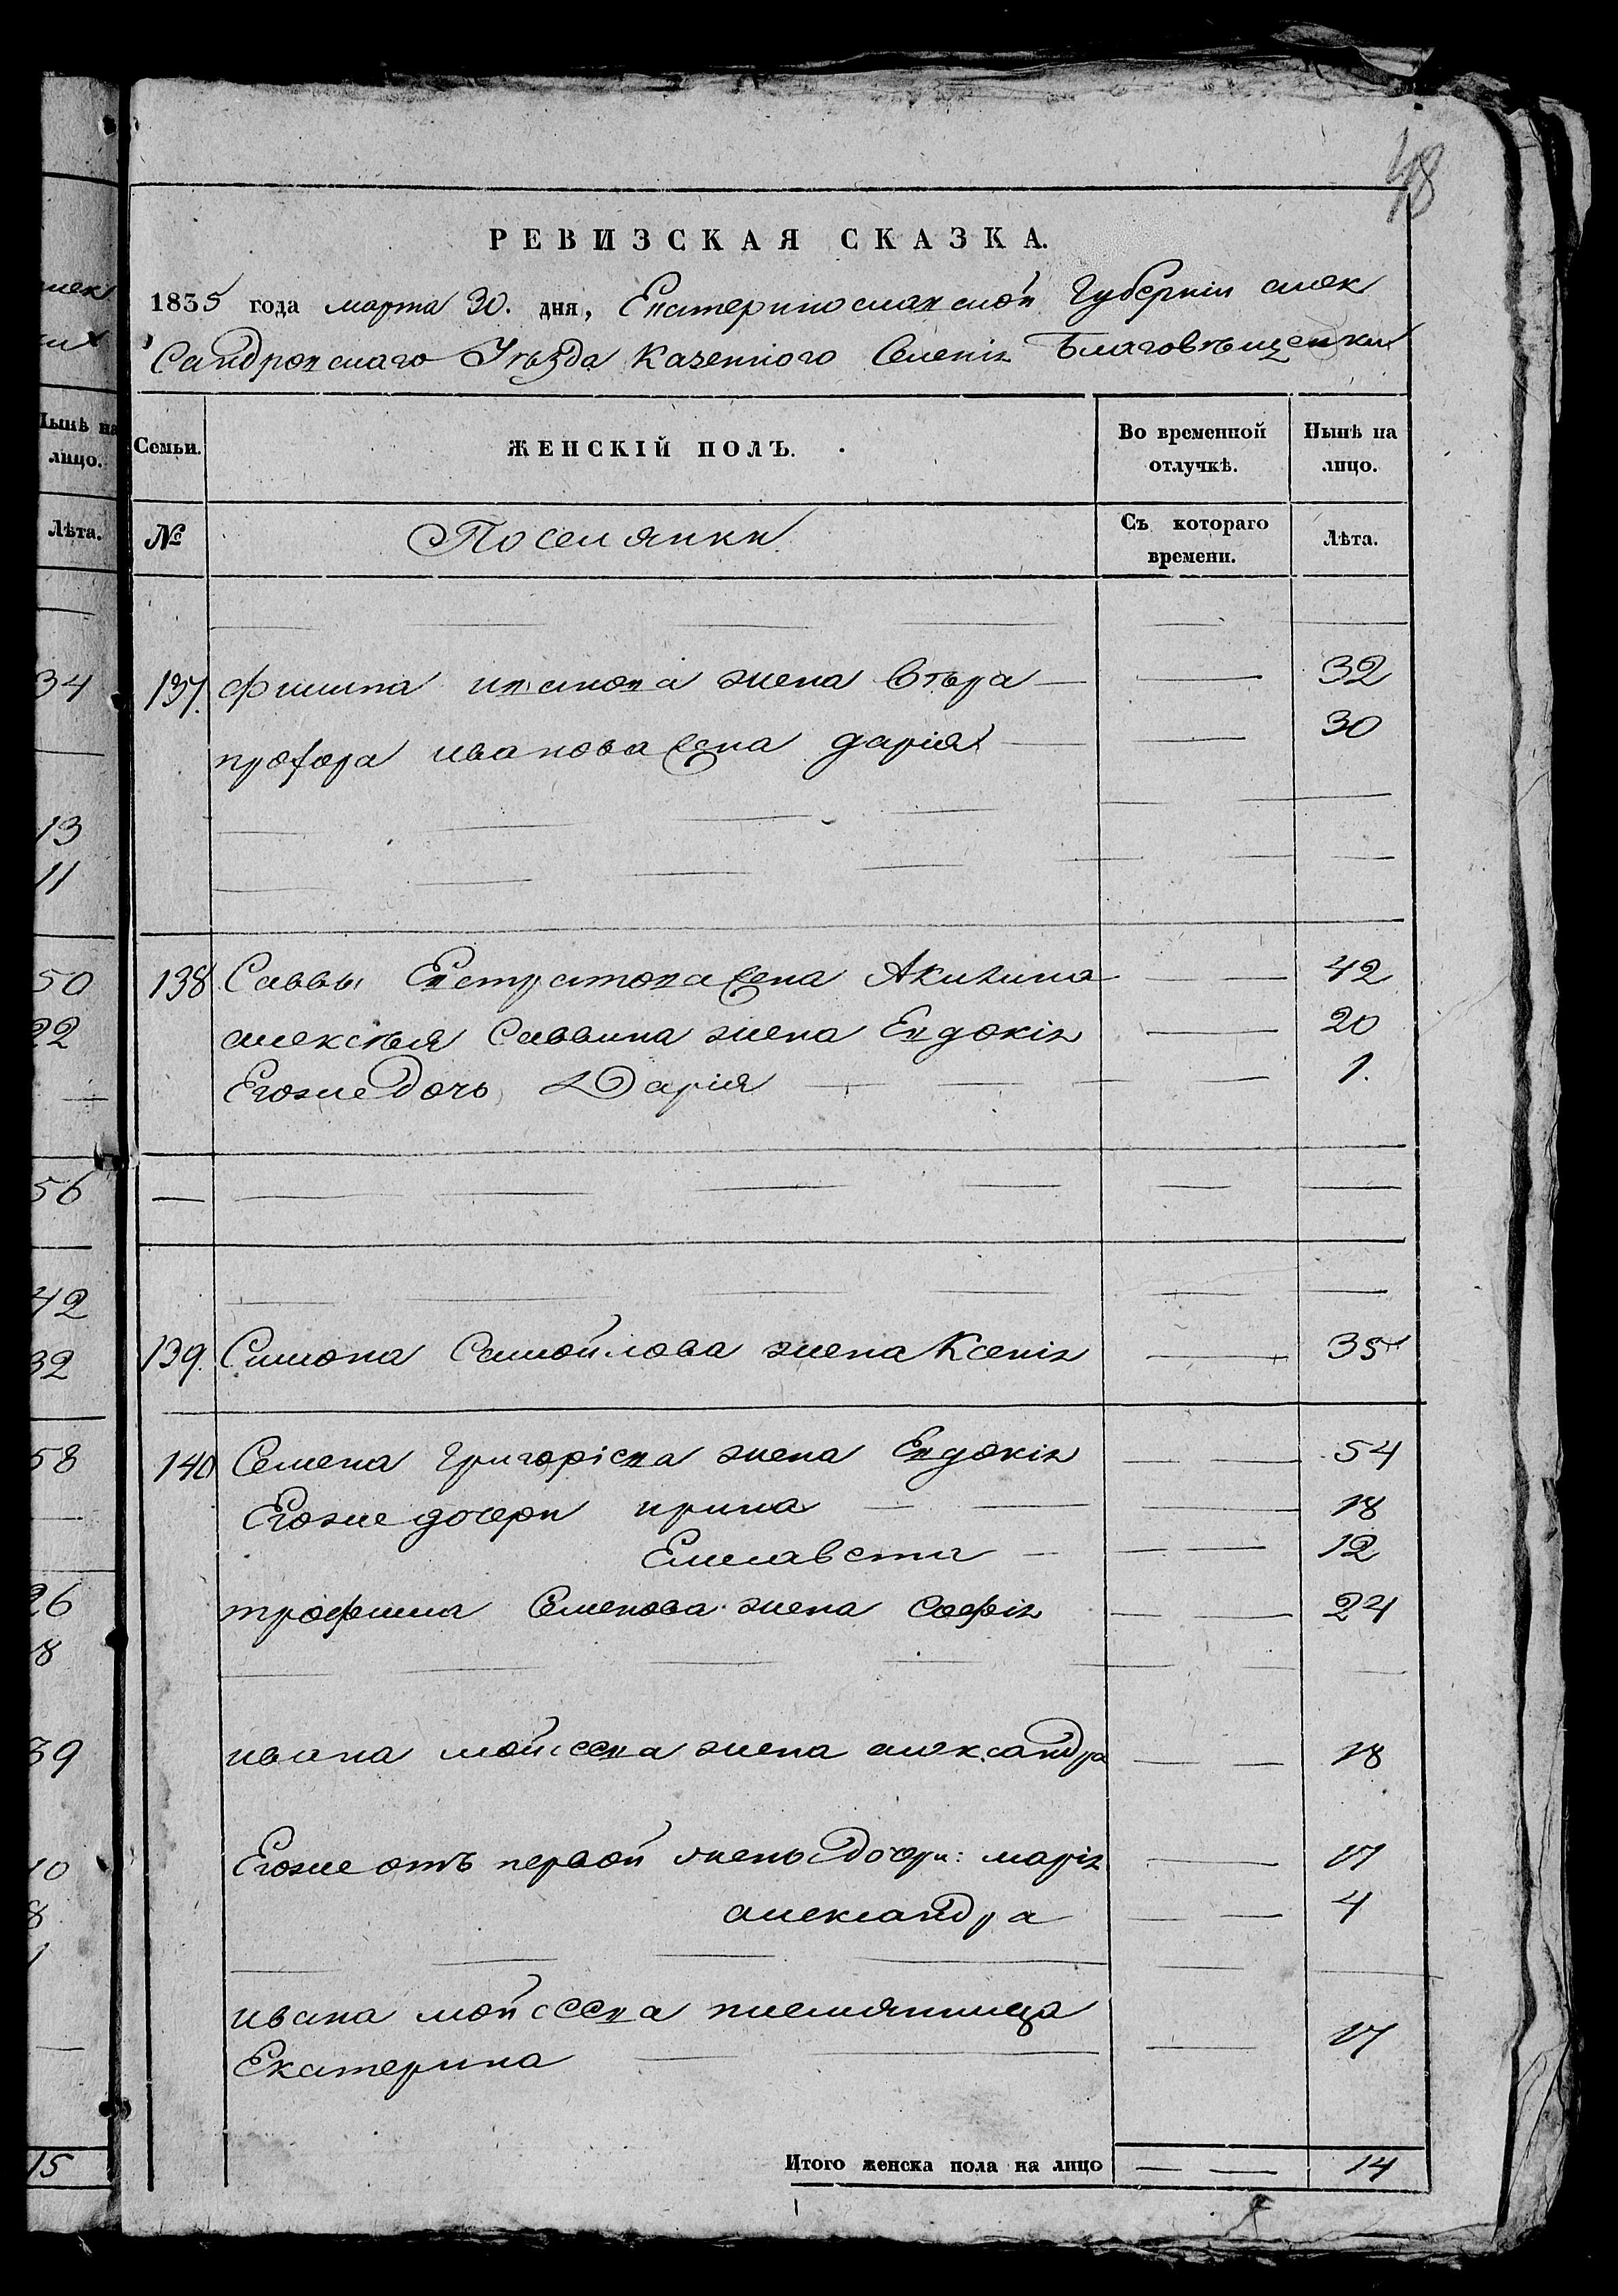 48
РЕВИЗСКАЯ СКАЗКА.
1835 года марта 30. дня, Екатеринославской Губерніи алек
сандровскаго Уѣзда Казенного Селенія Благовѣщенки
Семьи.
ЖЕНСКІЙ ПОЛЪ.
Во временной отлучкѣ.
Ныпѣ на лицо.
№
Поселянки
Съ котораго времени.
Лѣта.
137. филипа иванова жена Вѣра 32
прохора иванова жена дарія 30
138 Саввы Евстратова жена Акилина 42
алексѣя Саввина жена Евдокія 20
Егоже дочь Дарія 1.
139. Симона Самойлова жена Ксенія 35
140 Семена Григоріева жена Евдокія 54
Егоже дочери ирина 18
Елисавета 12
трофима Семенова жена софія 24
ивана мойсеева жена александра 18
Егоже отъ первой жены дочери: марія 17
александра 4
ивана мойсеева племянница
Екатерина 17
Итого женска пола на лицо 14
Ныпѣ на
лицо.
Лѣта.
34
13
11
50
22
56
42
32
58
26
8
39
10
8
1
15